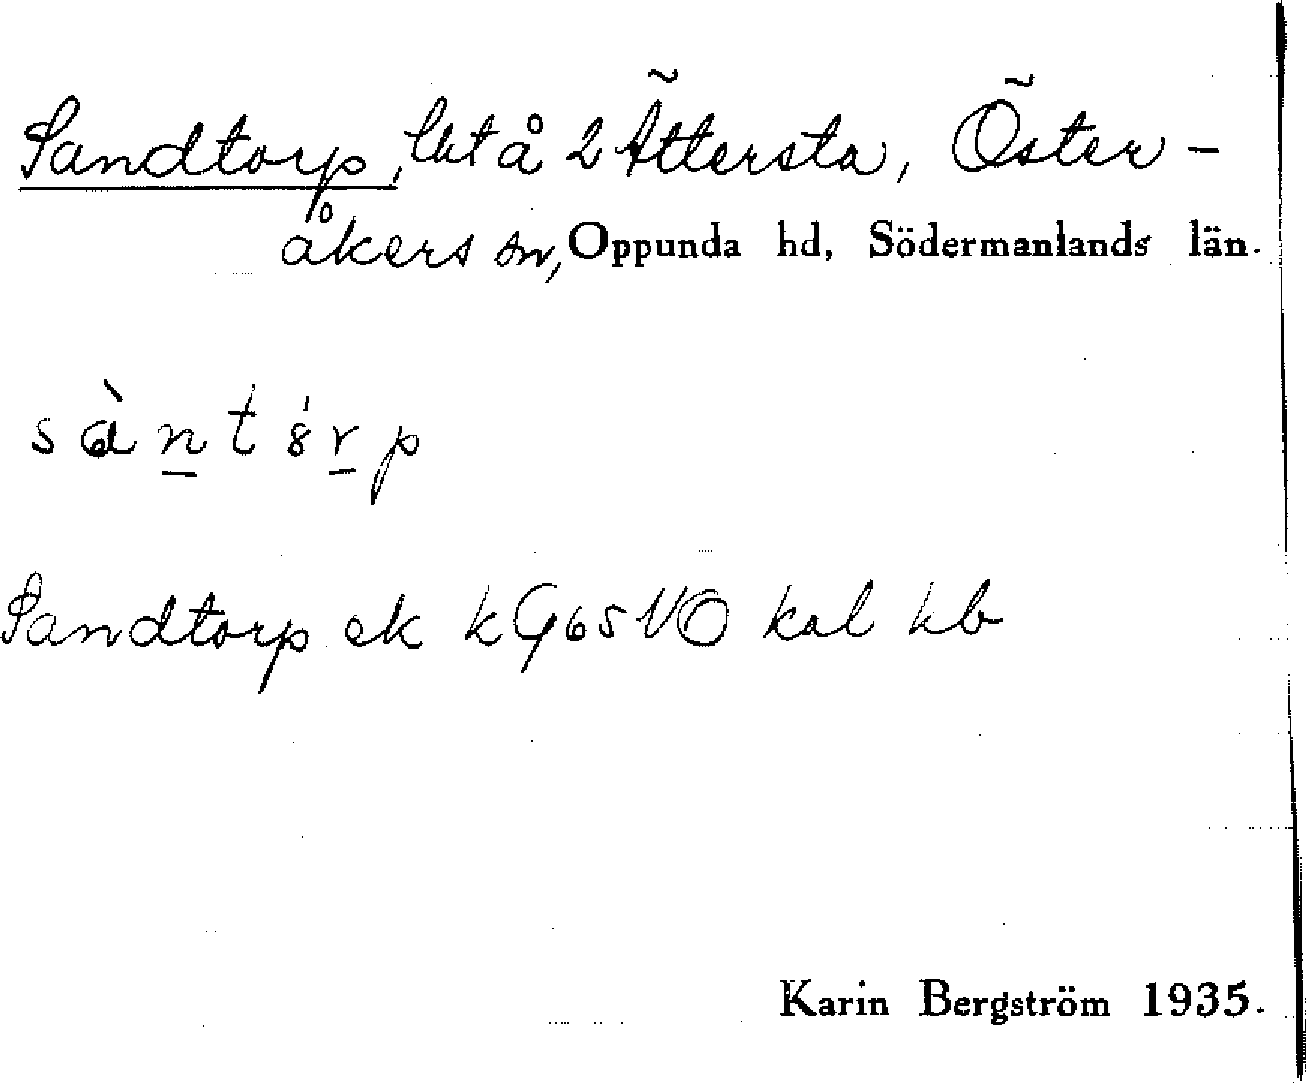 Sandtorp, lht å 2 Ättersta, Öster-
åkers sn, Oppunda hd, Södermanlands län.
Sandtorp ek kG65NO kal kb
Karin Bergström 1935.